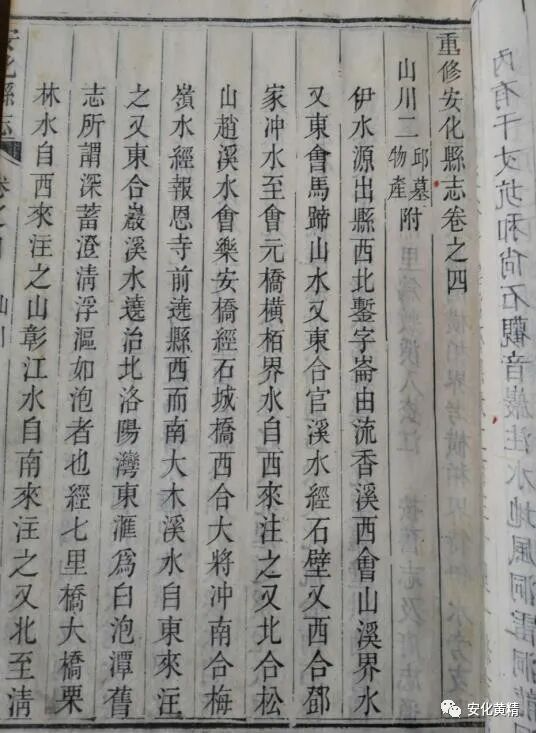 重修安化縣志卷之四
山川二 邱墓物產附
伊水源出縣西北鏨字崙由流香溪西會山溪界水
又東會馬蹄山水又東合官溪水經石壁又西合鄧
家冲水至會元橋橫栢界水自西來注之又北合松
山趙溪水會樂安橋經石城橋西合大將冲南合梅
嶺水經報恩寺前遶縣西而南大木溪水自東來注
之又東合巖溪水遶治北洛陽灣東滙為白泡潭舊
志所謂深蓄澄淸浮漚如泡者也經七里橋大橋栗
林水自西來注之山彰江水自南來注之又北至淸
安化縣志
卷之四 山川
安化黄精